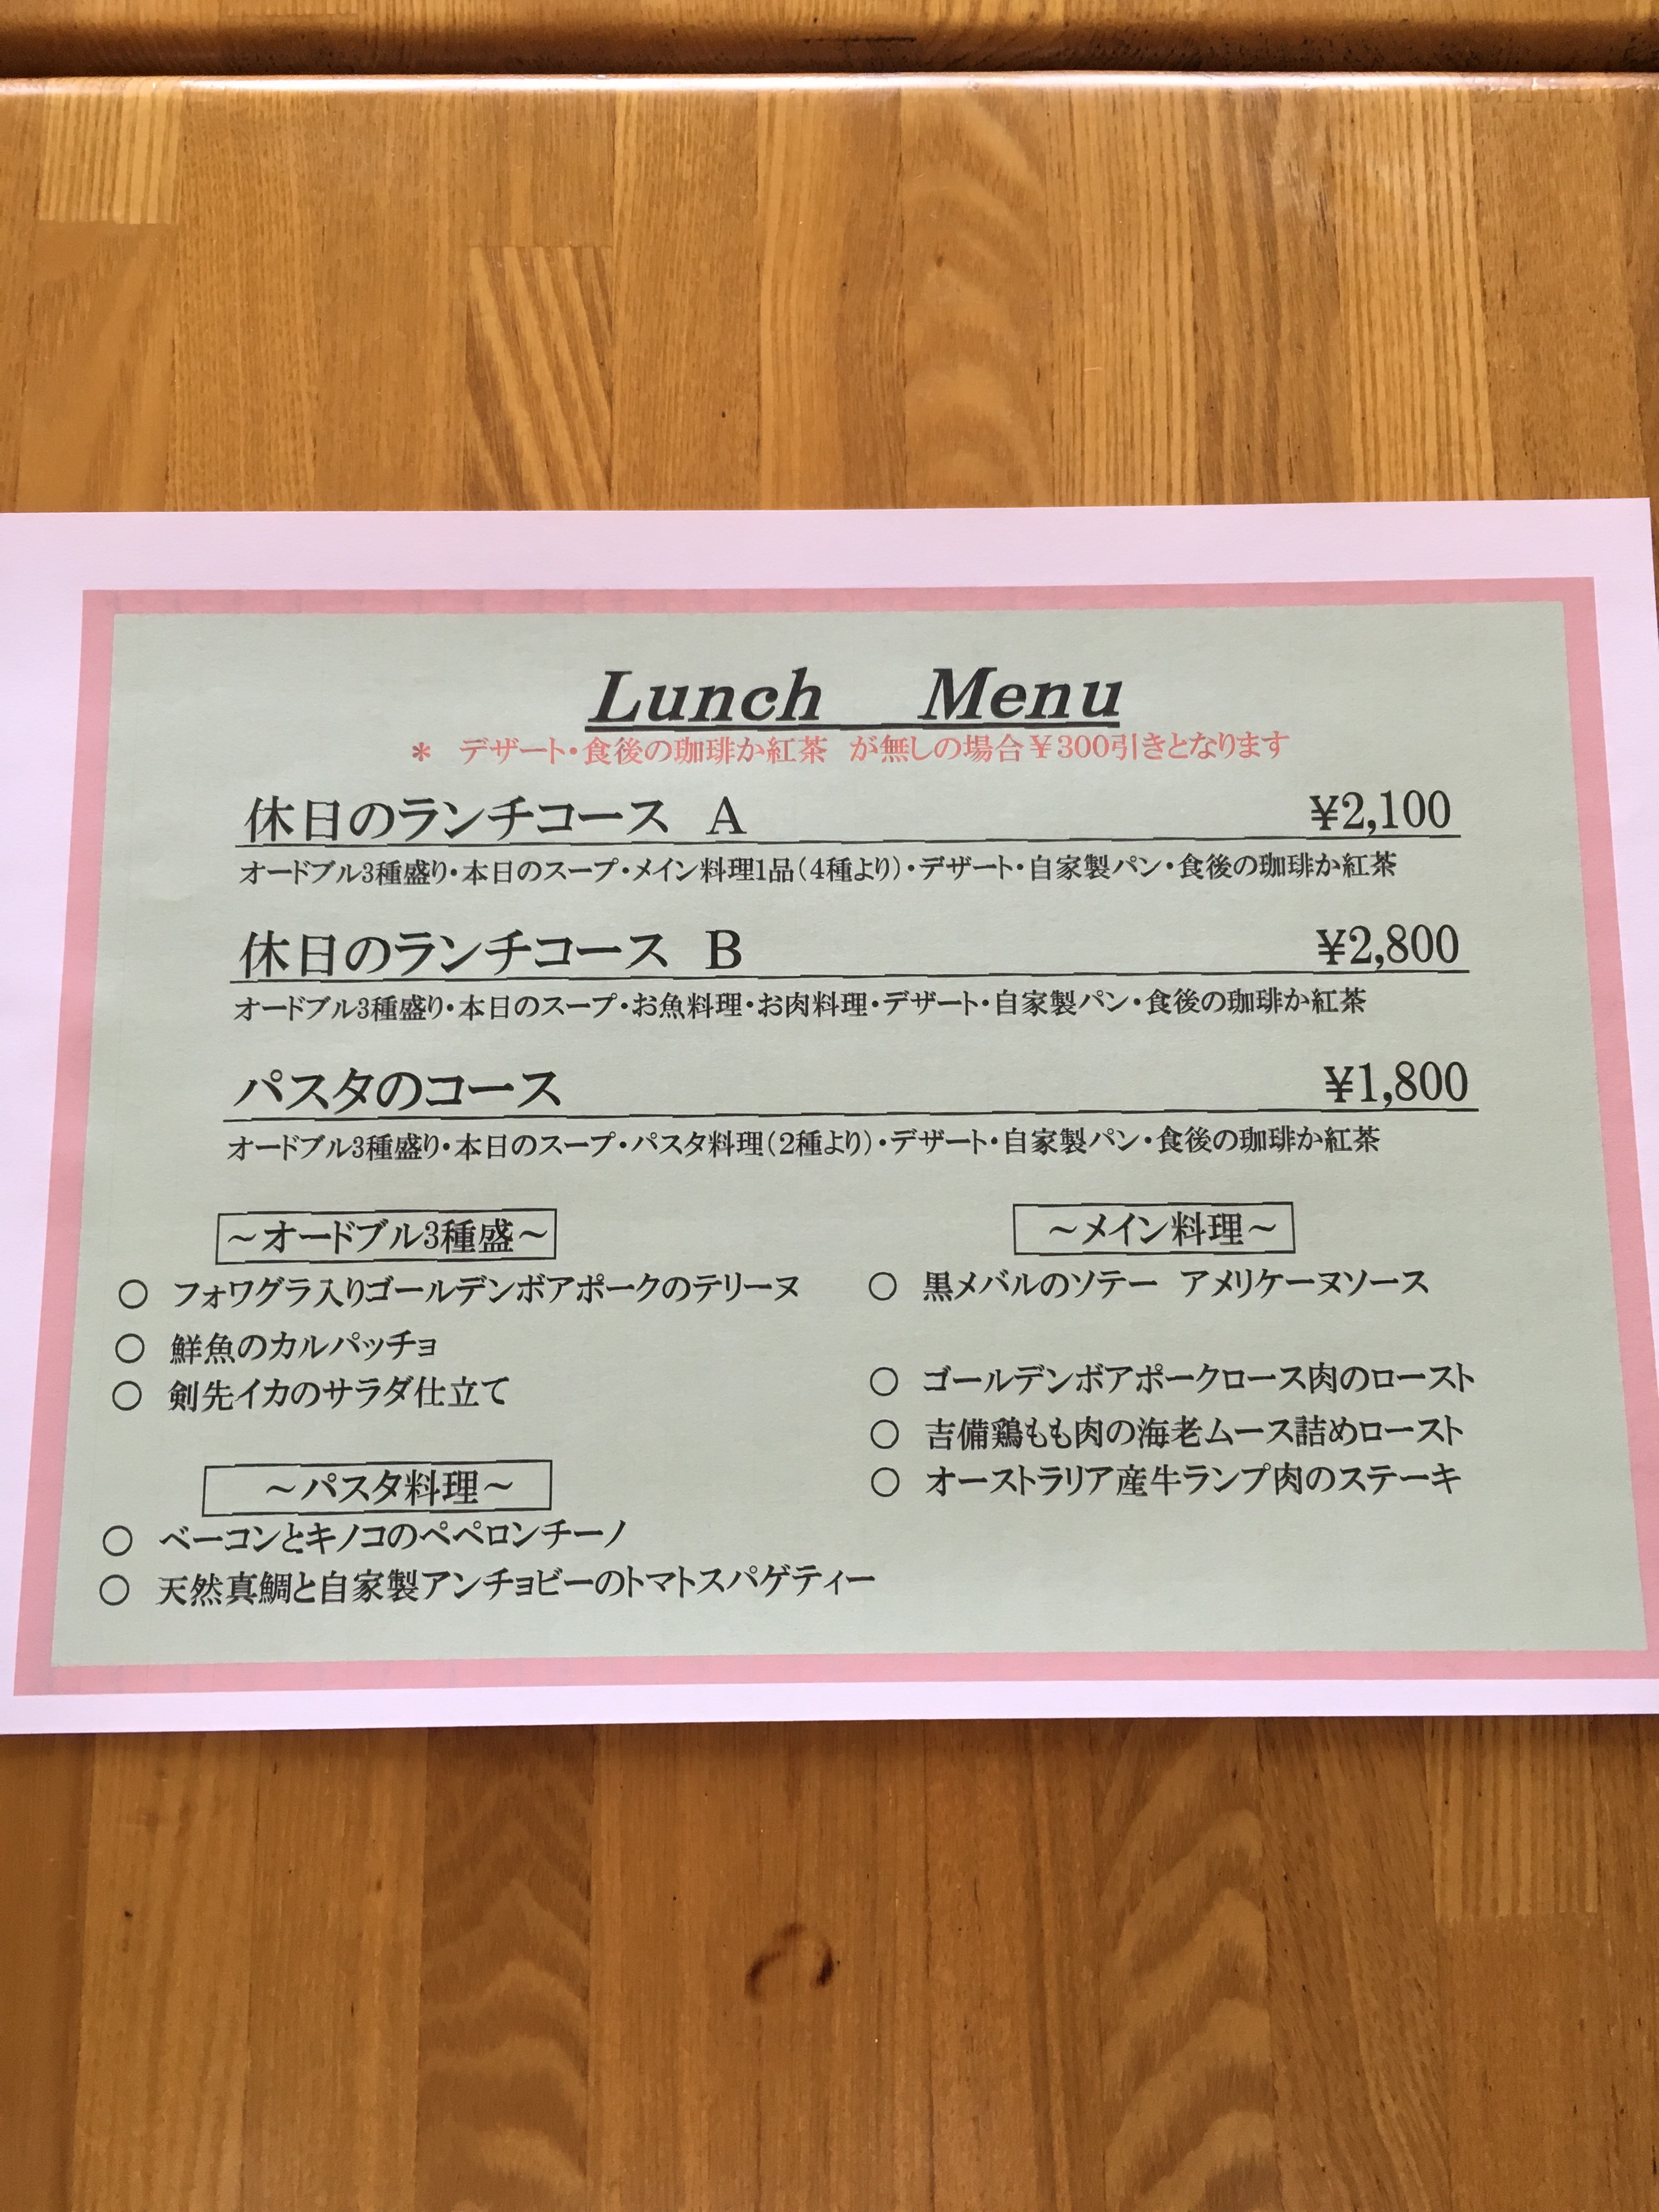 Lunch Menu
＊ デザート・食後の珈琲か紅茶 が無しの場合￥300引きとなります
休日のランチコース A ¥2,100
オードブル3種盛り・本日のスープ・メイン料理1品（4種より）・デザート・自家製パン・食後の珈琲か紅茶
休日のランチコース B ¥2,800
オードブル3種盛り・本日のスープ・お魚料理・お肉料理・デザート・自家製パン・食後の珈琲か紅茶
パスタのコース ¥1,800
オードブル3種盛り・本日のスープ・パスタ料理（2種より）・デザート・自家製パン・食後の珈琲か紅茶
～オードブル3種盛～
○ フォワグラ入りゴールデンボアポークのテリーヌ
○ 鮮魚のカルパッチョ
○ 剣先イカのサラダ仕立て
～パスタ料理～
○ ベーコンとキノコのペペロンチーノ
○ 天然真鯛と自家製アンチョビーのトマトスパゲティー
～メイン料理～
○ 黒メバルのソテー アメリケーヌソース
○ ゴールデンボアポークロース肉のロースト
○ 吉備鶏もも肉の海老ムース詰めロースト
○ オーストラリア産牛ランプ肉のステーキ